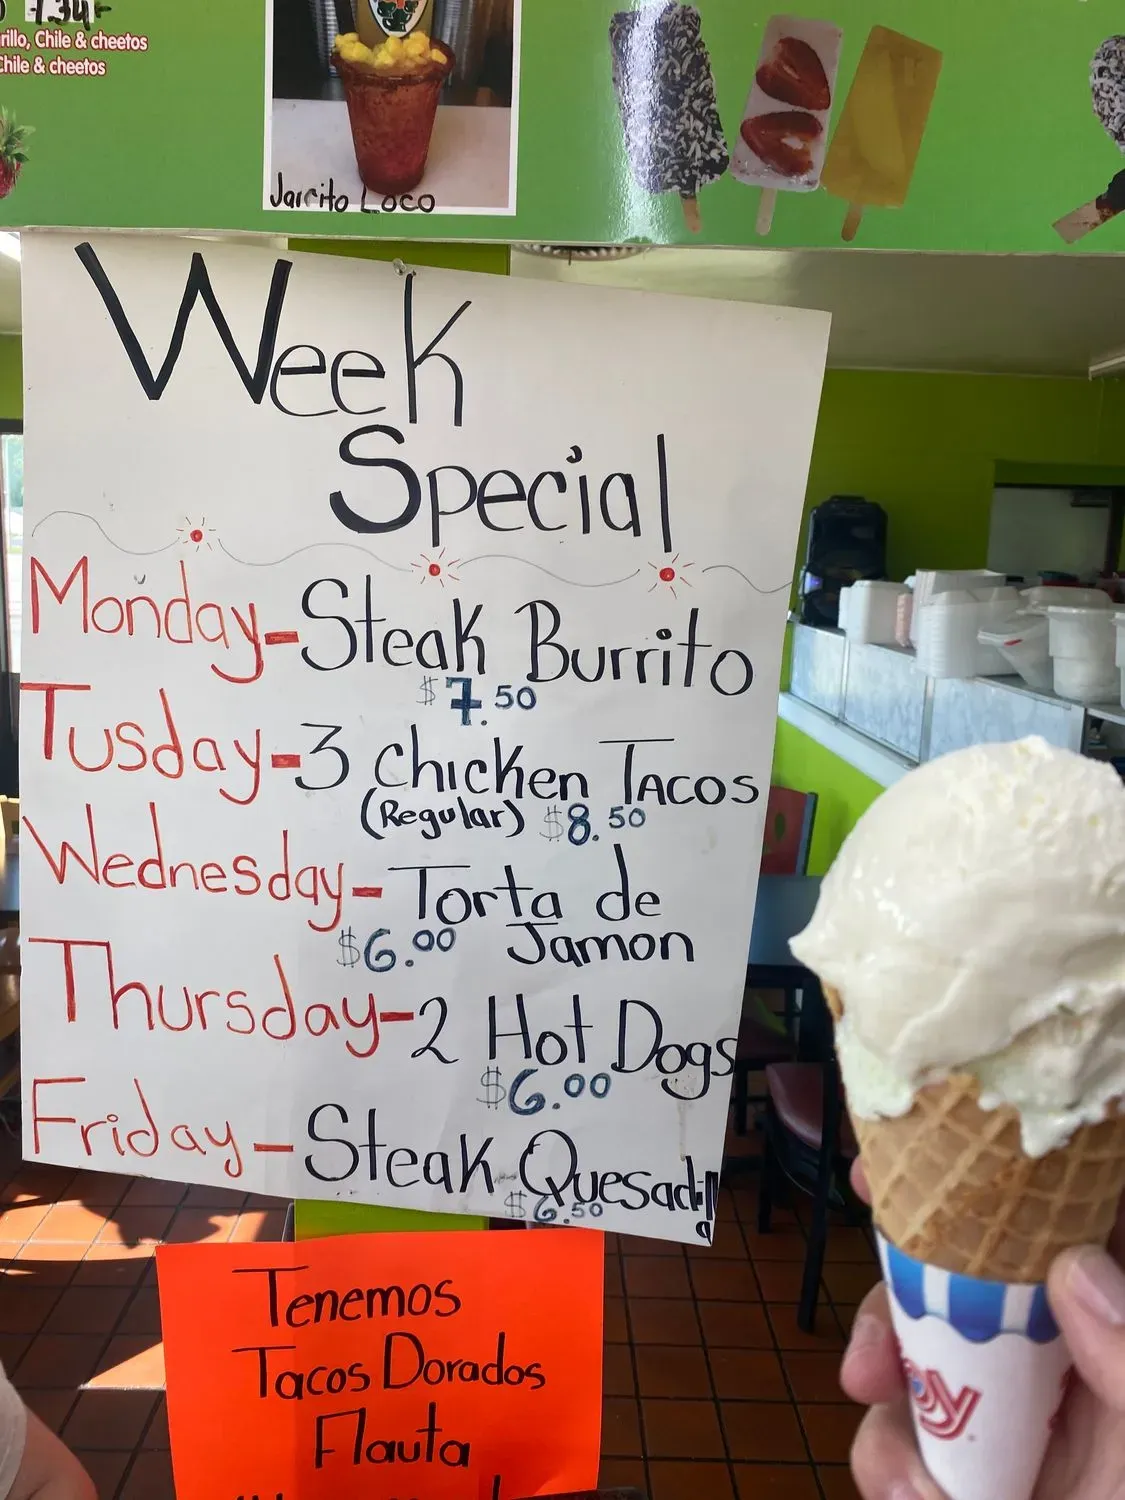 7.34
rillo, Chile & cheetos
Chile & cheetos
Jarrito Loco
Week
Special
Monday-Steak Burrito
$7.50
Tusday-3 Chicken Tacos
(Regular) $8.50
Wednesday-Torta de
$6.00 Jamon
Thursday-2 Hot Dogs
$6.00
Friday-Steak Quesadilla
$6.50
Tenemos
Tacos Dorados
Flauta